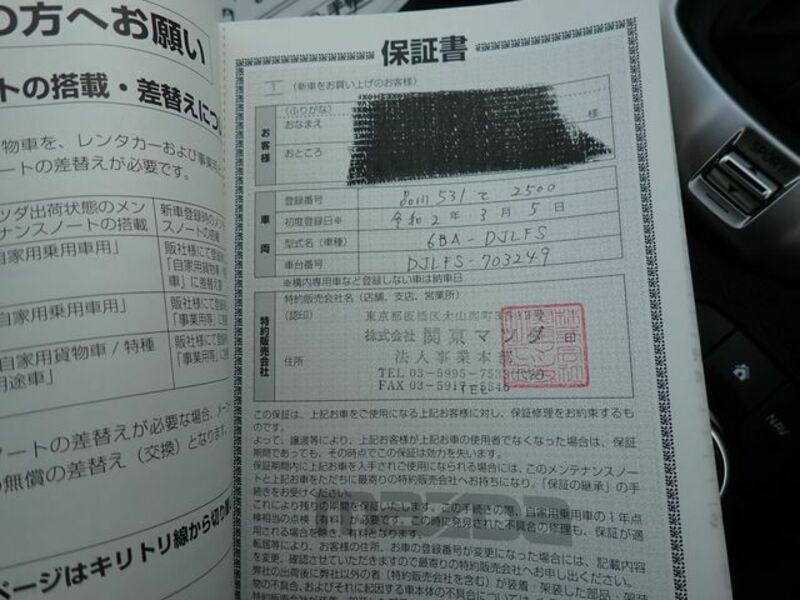 の方へお願い
ートの搭載・差替えにつ
物車を、レンタカーおよび事業用
ートの差替えが必要です。
ツダ出荷状態のメン
テナンスノートの搭載
新車登録時のメンテ
スノートの搭載
自家用乗用車用」
販社様にて登録
「自家用貨物車
車」に差替え
自家用乗用車用」
販社様にて登録
「事業用等」に
自家用貨物車/特種
用途車」
販社様にて
「事業用等」に
ートの差替えが必要な場合、メー
の無償の差替え(交換)となります。
ページはキリトリ線から切り
保証書
1 (新車をお買い上げのお客様)
お客様
(ふりがな)
おなまえ
様
おところ
車両
登録番号 品川 531 て 2500
初度登録日※ 令和2年3月5日
型式名(車種) 6BA-DJLFS
車台番号 DJLFS-703249
※構内専用車など登録しない車は納車日
特約販売会社
特約販売会社名(店舗、支店、営業所)
(認印)
東京都板橋区大山
株式会社 関東マツダ 印
住所
法人事業本部
TEL 03-5995-75
FAX 03-5917-
この保証は、上記お車をご使用になる上記お客様に対し、保証修理をお約束するも
のです。
よって、譲渡等により、上記お客様が上記お車の使用者でなくなった場合は、保証
期間であっても、その時点でこの保証は効力を失います。
保証期間内に上記お車を入手されご使用になられる場合には、このメンテナンスノー
トと上記お車をただちに最寄りの特約販売会社へお持ちになり、「保証の継承」の手
続きをお受けください。
これにより残りの期間を保証いたします。この手続きの際、自家用乗用車の1年点
検相当の点検(有料)が必要です。この時に発見された不具合の修理も、保証が適
用される場合を除き、有料となります。
転居等により、お客様の住所、お車の登録番号が変更になった場合には、記載内容
を変更、確認させていただきますので最寄りの特約販売会社へお申し出ください。
弊社の出荷後に弊社以外の者(特約販売会社を含む)が装着・架装した部品・架装
物の不具合、およびそれに起因する車本体の不具合については
mazda
SPORT
NAV